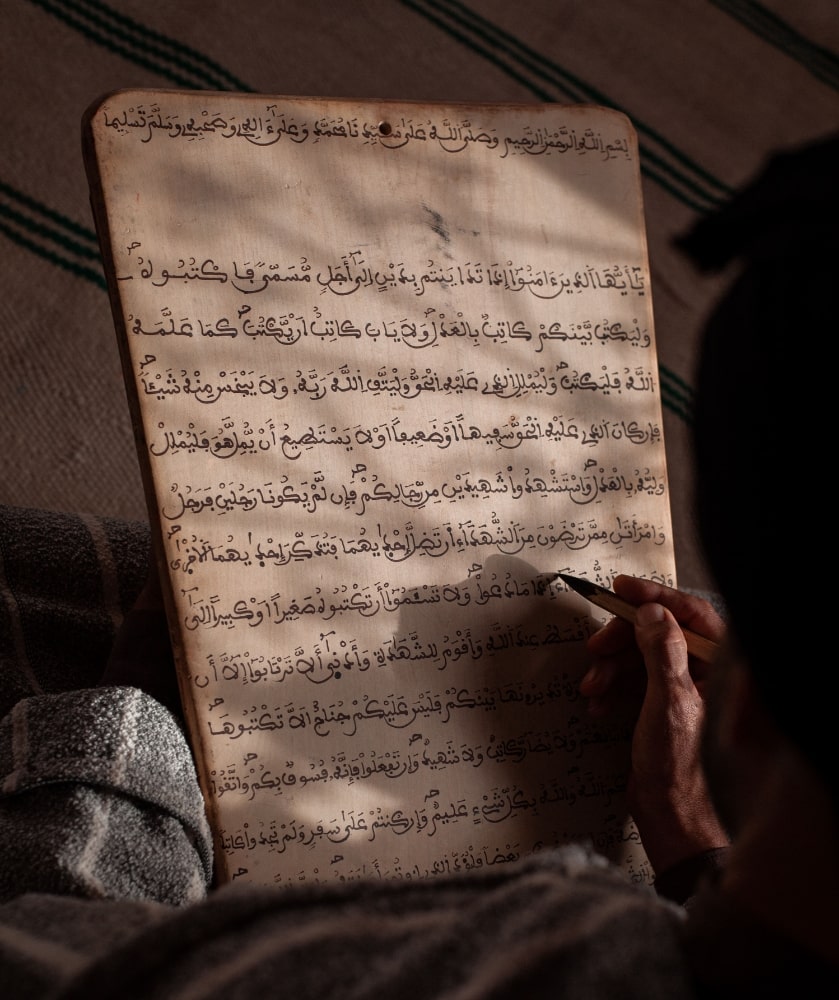 بِسْمِ اللَّهِ الرَّحْمَٰنِ الرَّحِيمِ وَصَلَّى اللَّهُ عَلَىٰ سَيِّدِنَا مُحَمَّدٍ وَعَلَىٰ ءَالِهِ وَصَحْبِهِ وَسَلَّمَ تَسْلِيمًا
يَٰأَيُّهَا الَّذِينَ ءَامَنُوا إِذَا تَدَايَنتُم بِدَيْنٍ إِلَىٰ أَجَلٍ مُّسَمًّى فَاكْتُبُوهُ
وَلْيَكْتُب بَّيْنَكُمْ كَاتِبٌ بِالْعَدْلِ وَلَا يَابَ كَاتِبٌ اَنْ يَّكْتُبَ كَمَا عَلَّمَهُ
اللَّهُ فَلْيَكْتُبْ وَلْيُمْلِلِ الَّذِي عَلَيْهِ الْحَقُّ وَلْيَتَّقِ اللَّهَ رَبَّهُ وَلَا يَبْخَسْ مِنْهُ شَيْئًا
فَإِن كَانَ الَّذِي عَلَيْهِ الْحَقُّ سَفِيهًا اَوْ ضَعِيفًا اَوْ لَا يَسْتَطِيعُ أَنْ يُّمِلَّ هُوَ فَلْيُمْلِلْ
وَلِيُّهُ بِالْعَدْلِ وَاسْتَشْهِدُوا شَهِيدَيْنِ مِن رِّجَالِكُمْ فَإِن لَّمْ يَكُونَا رَجُلَيْنِ فَرَجُلٌ
وَامْرَأَتَٰنِ مِمَّن تَرْضَوْنَ مِنَ الشُّهَدَاءِ أَن تَضِلَّ إِحْدَىٰهُمَا فَتُذَكِّرَ إِحْدَىٰهُمَا الْأُخْرَىٰ
وَلَا الشُّهَدَاءُ إِذَا مَا دُعُوا وَلَا تَسْـَٔمُوا أَن تَكْتُبُوهُ صَغِيرًا اَوْ كَبِيرًا اِلَىٰ
أَقْسَطُ عِندَ اللَّهِ وَأَقْوَمُ لِلشَّهَٰدَةِ وَأَدْنَىٰ أَلَّا تَرْتَابُوا إِلَّا أَن
تُدِيرُونَهَا بَيْنَكُمْ فَلَيْسَ عَلَيْكُمْ جُنَاحٌ اَلَّا تَكْتُبُوهَا
وَلَا يُضَارَّ كَاتِبٌ وَلَا شَهِيدٌ وَإِن تَفْعَلُوا فَإِنَّهُ فُسُوقٌ بِكُمْ وَاتَّقُوا
اللَّهُ وَاللَّهُ بِكُلِّ شَيْءٍ عَلِيمٌ وَإِن كُنتُمْ عَلَىٰ سَفَرٍ وَلَمْ تَجِدُوا كَاتِبًا
بَعْضًا فَلْيُؤَدِّ الَّذِي